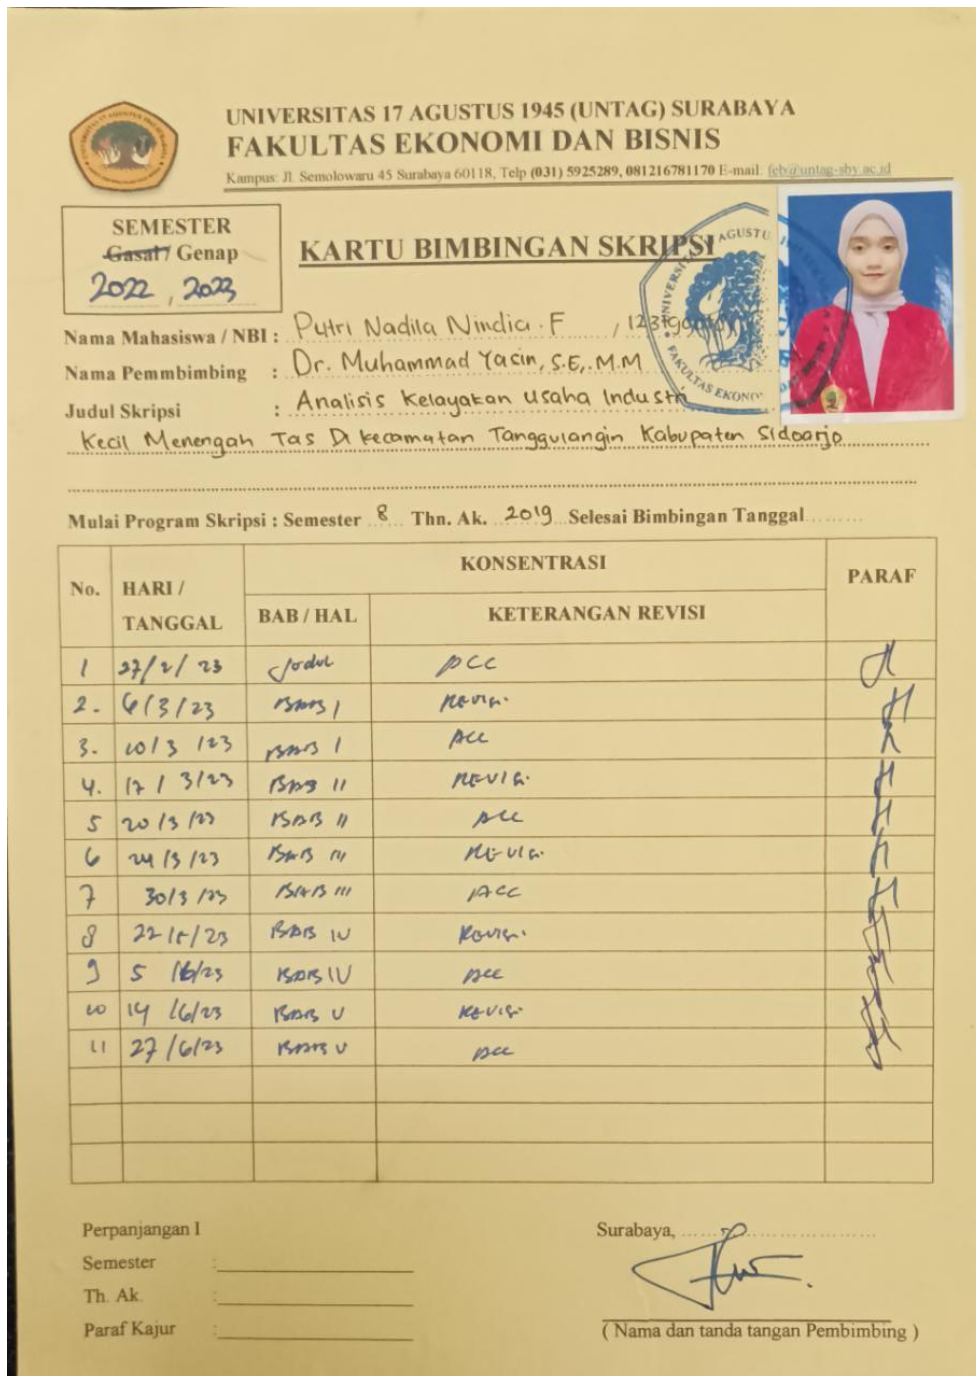 UNIVERSITAS 17 AGUSTUS 1945 (UNTAG) SURABAYA
FAKULTAS EKONOMI DAN BISNIS
Kampus: Jl. Semolowaru 45 Surabaya 60118, Telp (031) 5925289, 081216781170 E-mail: feb@untag-sby.ac.id
SEMESTER
Gasal / Genap
2022 , 2023
KARTU BIMBINGAN SKRIPSI
Nama Mahasiswa / NBI : Putri Nadila Nindia . F ,
Nama Pemmbimbing : Dr. Muhammad Yasin, S.E,.M.M
Judul Skripsi : Analisis Kelayakan Usaha Industri
Kecil Menengah Tas Di Kecamatan Tanggulangin Kabupaten Sidoarjo
Mulai Program Skripsi : Semester 8 Thn. Ak. 2019 Selesai Bimbingan Tanggal
No. HARI / TANGGAL KONSENTRASI PARAF
BAB / HAL KETERANGAN REVISI
1 27/2/23 Judul ACC
2. 6/3/23 BAB I Revisi
3. 10/3/23 BAB I ACC
4. 17/3/23 BAB II REVISI
5 20/3/23 BAB II ACC
6 24/3/23 BAB III REVISI
7 30/3/23 BAB III ACC
8 22/5/23 BAB IV Revisi
9 5/6/23 BAB IV ACC
10 14/6/23 BAB V REVISI
11 27/6/23 BAB V ACC
Perpanjangan I
Semester :
Th. Ak. :
Paraf Kajur :
Surabaya,
( Nama dan tanda tangan Pembimbing )